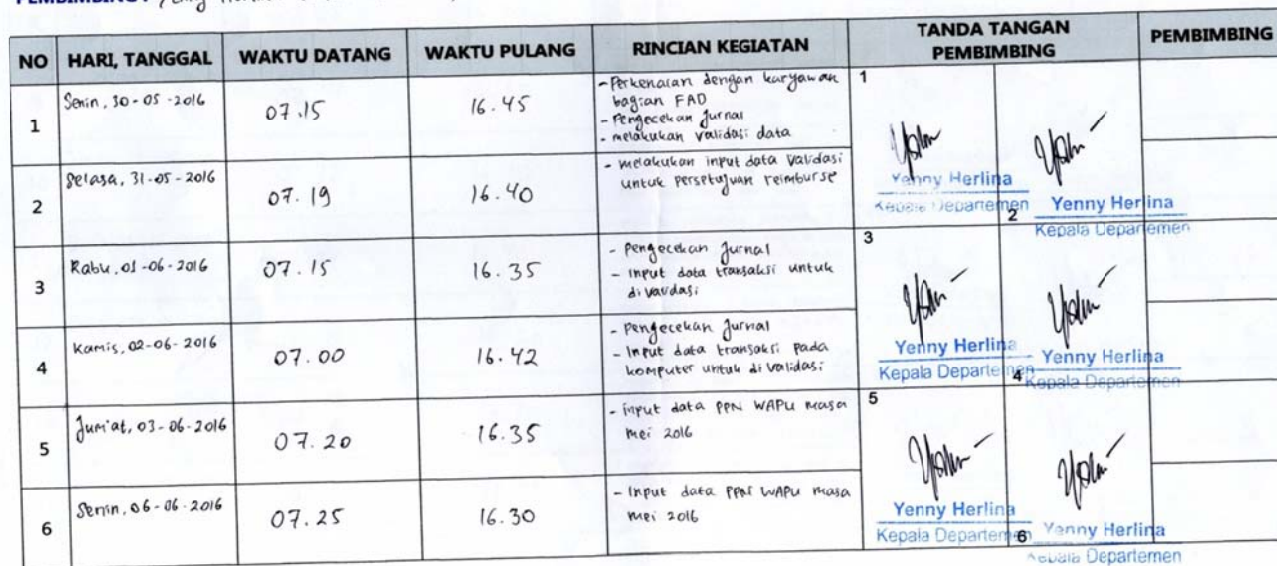 PEMBIMBING :
NO HARI, TANGGAL WAKTU DATANG WAKTU PULANG RINCIAN KEGIATAN TANDA TANGAN PEMBIMBING PEMBIMBING
1 Senin, 30-05-2016 07.15 16.45
- Perkenalan dengan karyawan
bagian FAD
- Pengecekan Jurnal
- melakukan validasi data
1
Yenny Herlina
Kepala Departemen
2 Selasa, 31-05-2016 07.19 16.40
- melakukan input data validasi
untuk persetujuan reimburse
2
Yenny Herlina
Kepala Departemen
3 Rabu, 01-06-2016 07.15 16.35
- Pengecekan Jurnal
- Input data transaksi untuk
di validasi
3
Yenny Herlina
Kepala Departemen
4 Kamis, 02-06-2016 07.00 16.42
- Pengecekan Jurnal
- Input data transaksi pada
komputer untuk di validasi
4
Yenny Herlina
Kepala Departemen
5 Jum'at, 03-06-2016 07.20 16.35
- input data PPN WAPU masa
mei 2016
5
Yenny Herlina
Kepala Departemen
6 Senin, 06-06-2016 07.25 16.30
- Input data PPN WAPU masa
mei 2016
6
Yenny Herlina
Kepala Departemen